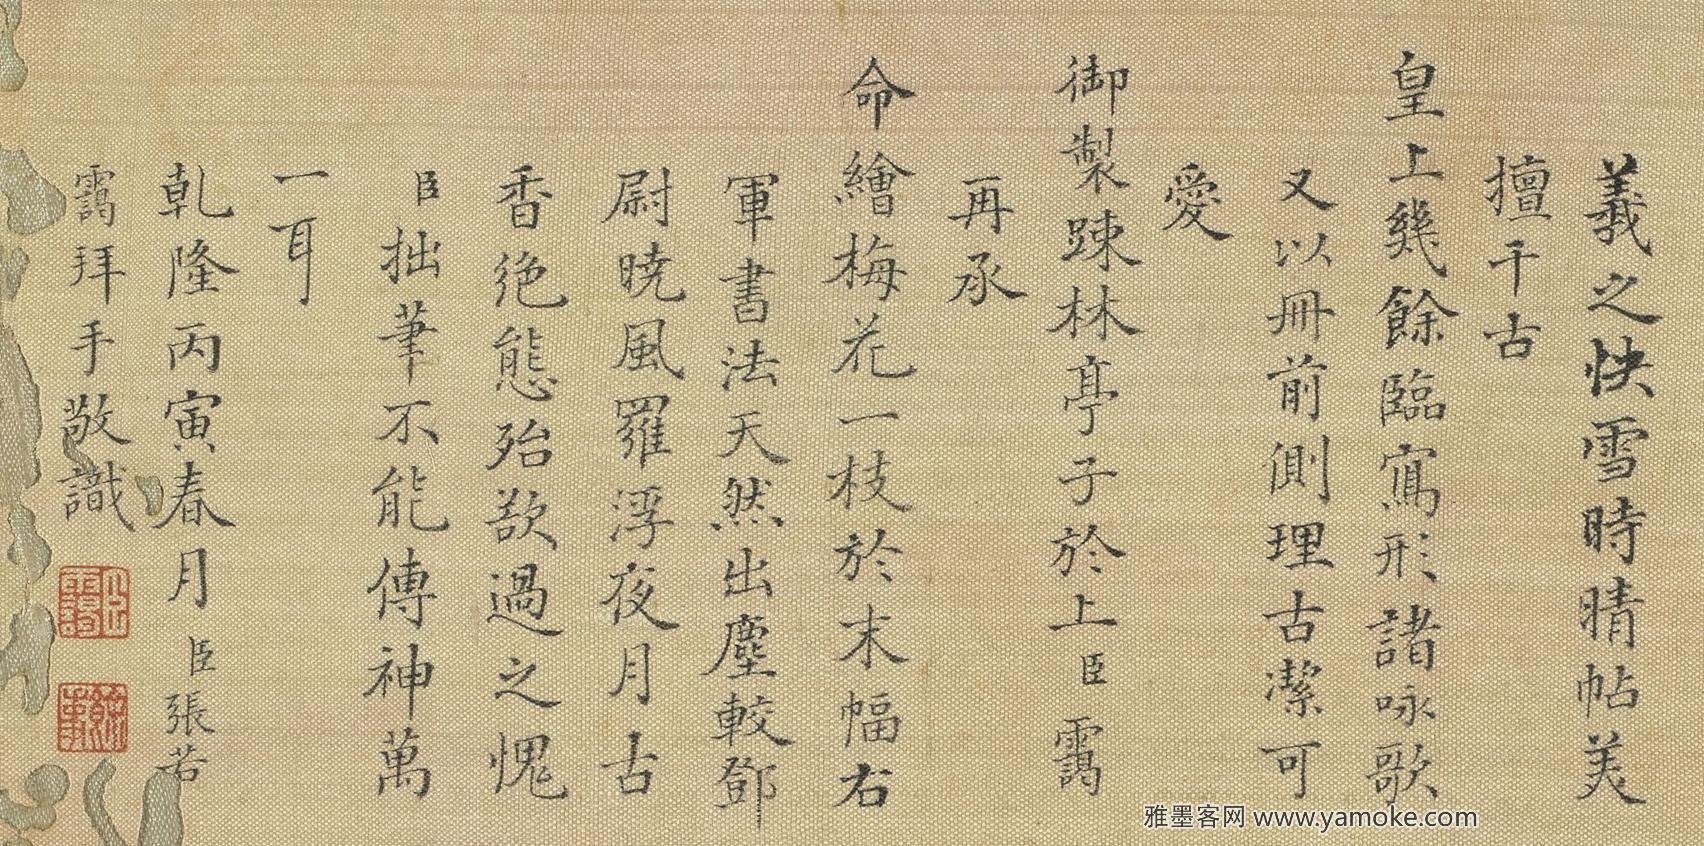 羲之快雪時晴帖美
擅千古
皇上幾餘臨寫形諸咏歌
又以冊前側理古潔可
愛
御製踈林亭子於上臣靄
再承
命繪梅花一枝於末幅右
軍書法天然出塵較鄧
尉曉風羅浮夜月古
香絶態殆欲過之愧
臣拙筆不能傳神萬
一耳
乾隆丙寅春月臣張若
靄拜手敬識
雅墨客网 www.yamoke.com